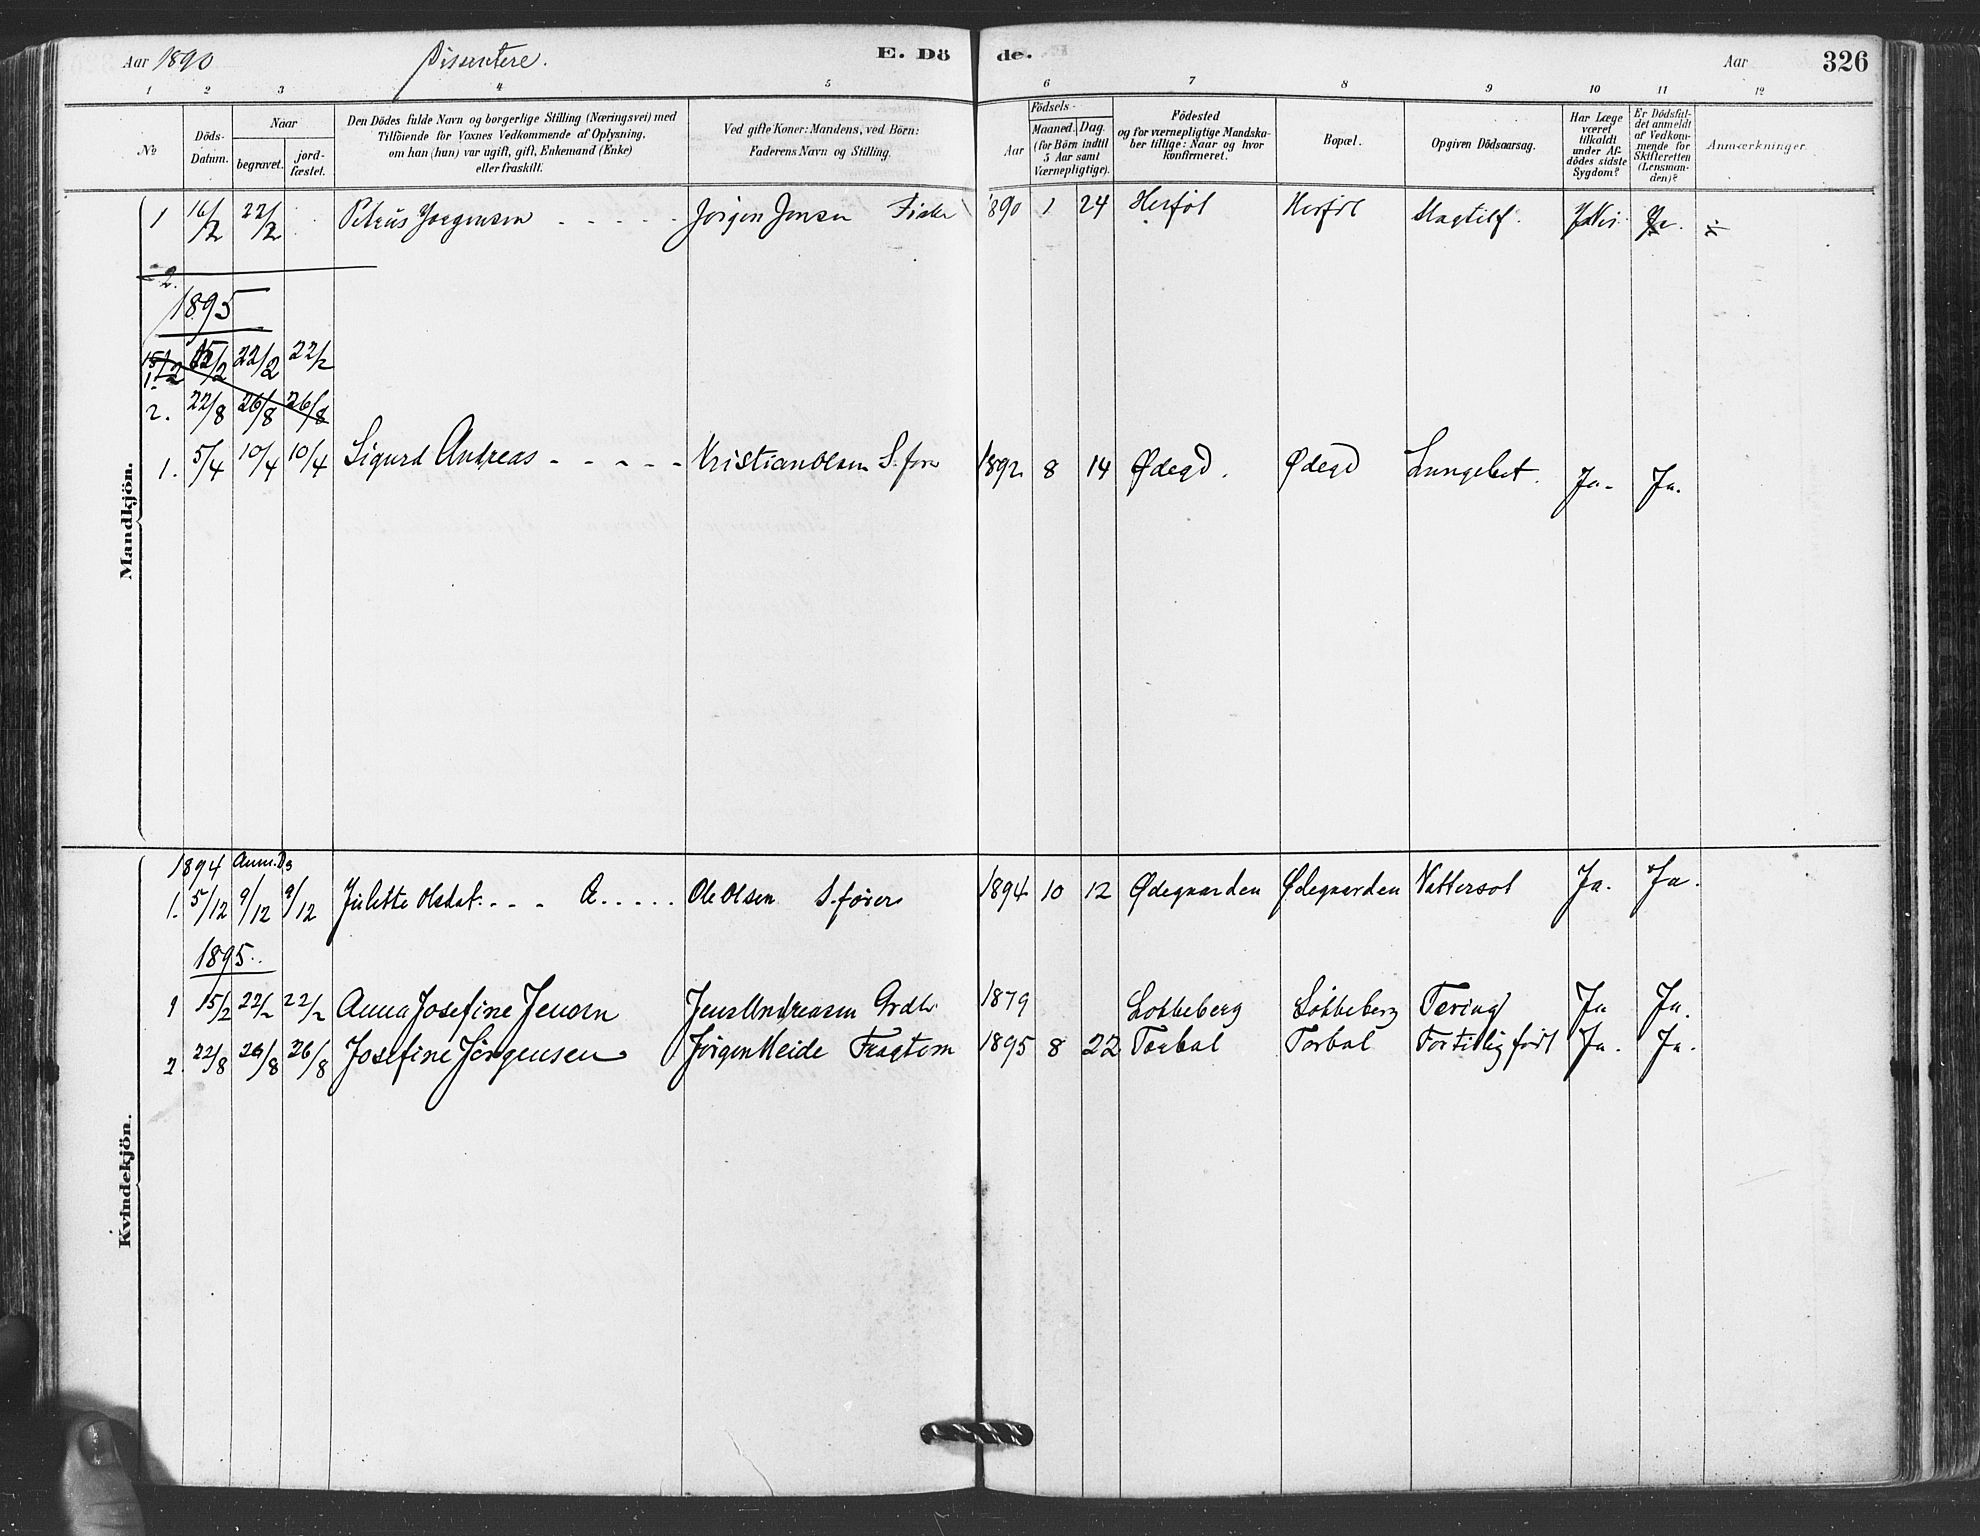 Aar 1890 Disentere. E. Döde. Aar 326
1 2 3 4 5 6 7 8 9 10 11 12
No
Döds-Datum.
Naar
begravet.
jord-fæstet.
Den Dödes fulde Navn og borgerlige Stilling (Næringsvei) med
Tilföiende for Voxnes Vedkommende af Oplysning,
om han (hun) var ugift, gift, Enkemand (Enke)
eller fraskilt.
Ved gifte Koner: Mandens, ved Börn:
Faderens Navn og Stilling.
Födsels-
Aar
Maaned. Dag.
(for Börn indtil
5 Aar samt
Værnepligtige).
Födested
og for værnepligtige Mandska-
ber tillige: Naar og hvor
konfirmeret.
Bopæl.
Opgiven Dödsaarsag.
Har Læge
været
tilkaldt
under Af-
dödes sidste
Sygdom?
Er Dödsfal-
det anmeldt
af Vedkom-
mende for
Skifteretten
(Lensman-
den)?
Anmærkninger.
Mandkjön.
1 16/2 22/2 Petrus Jorgensen - - - - - Jörgen Jensen 1890 1 24 Herföl Herföl
2.
1895
22/2 22/2
2. 22/8 26/8 26/8
1. 5/4 10/4 10/4 Sigurd Andreas - - - - - Kristian Olsen 1892 8 14 Ødegd. Ødegd Lungebet. Ja. Ja.
Kvindekjön.
1894
1. 5/12 9/12 9/12 Julette Olsdat. - - - Ole Olsen S.förer 1894 10 12 Ødegaarden Ødegaarden Vattersot Ja. Ja.
1895.
1 15/2 22/2 22/2 Anna Josefine Jensen Jens Andreasen 1879 Løkkeberg Løkkeberg Tæring Ja Ja.
2. 22/8 26/8 26/8 Josefine Jörgensen Jörgen 1895 8 22 Torbal Torbal For tidlig født Ja. Ja.